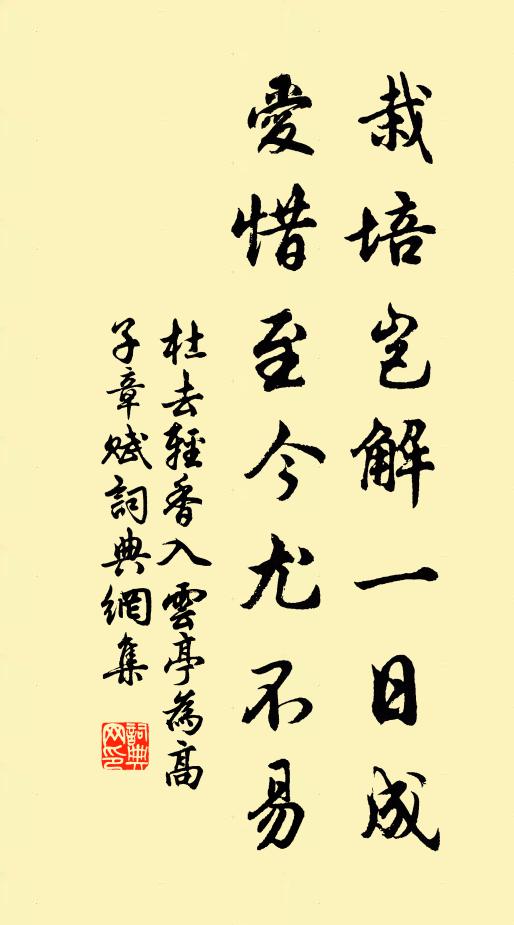 栽培岂解一日成
愛惜至今尤不易
杜去輕香入雲亭為高
子章賦詞典網集
詞典
网印